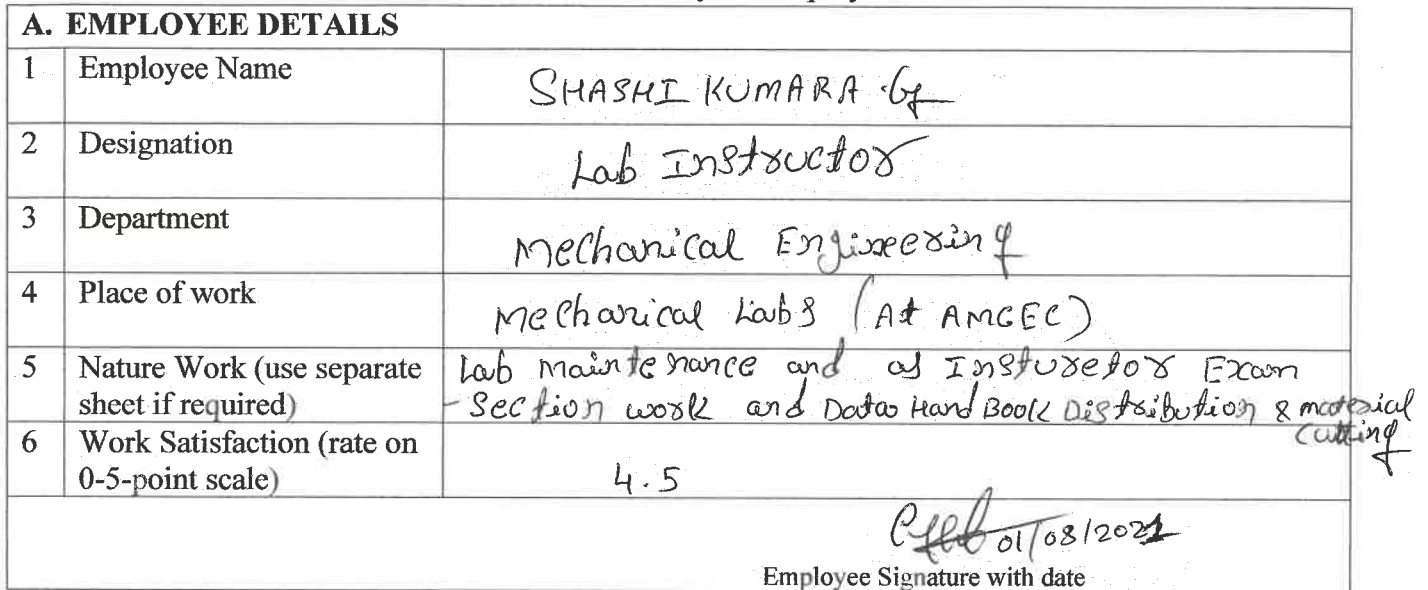 A. EMPLOYEE DETAILS
1 Employee Name SHASHI KUMARA .G
2 Designation Lab Instructor
3 Department Mechanical Engineering
4 Place of work Mechanical Labs (At AMGEC)
5 Nature Work (use separate Lab Maintenance and as Insturetor Exam
sheet if required) - Section work and Data Hand Book Distribution & material
cutting
6 Work Satisfaction (rate on
0-5-point scale) 4.5
01/08/2021
Employee Signature with date